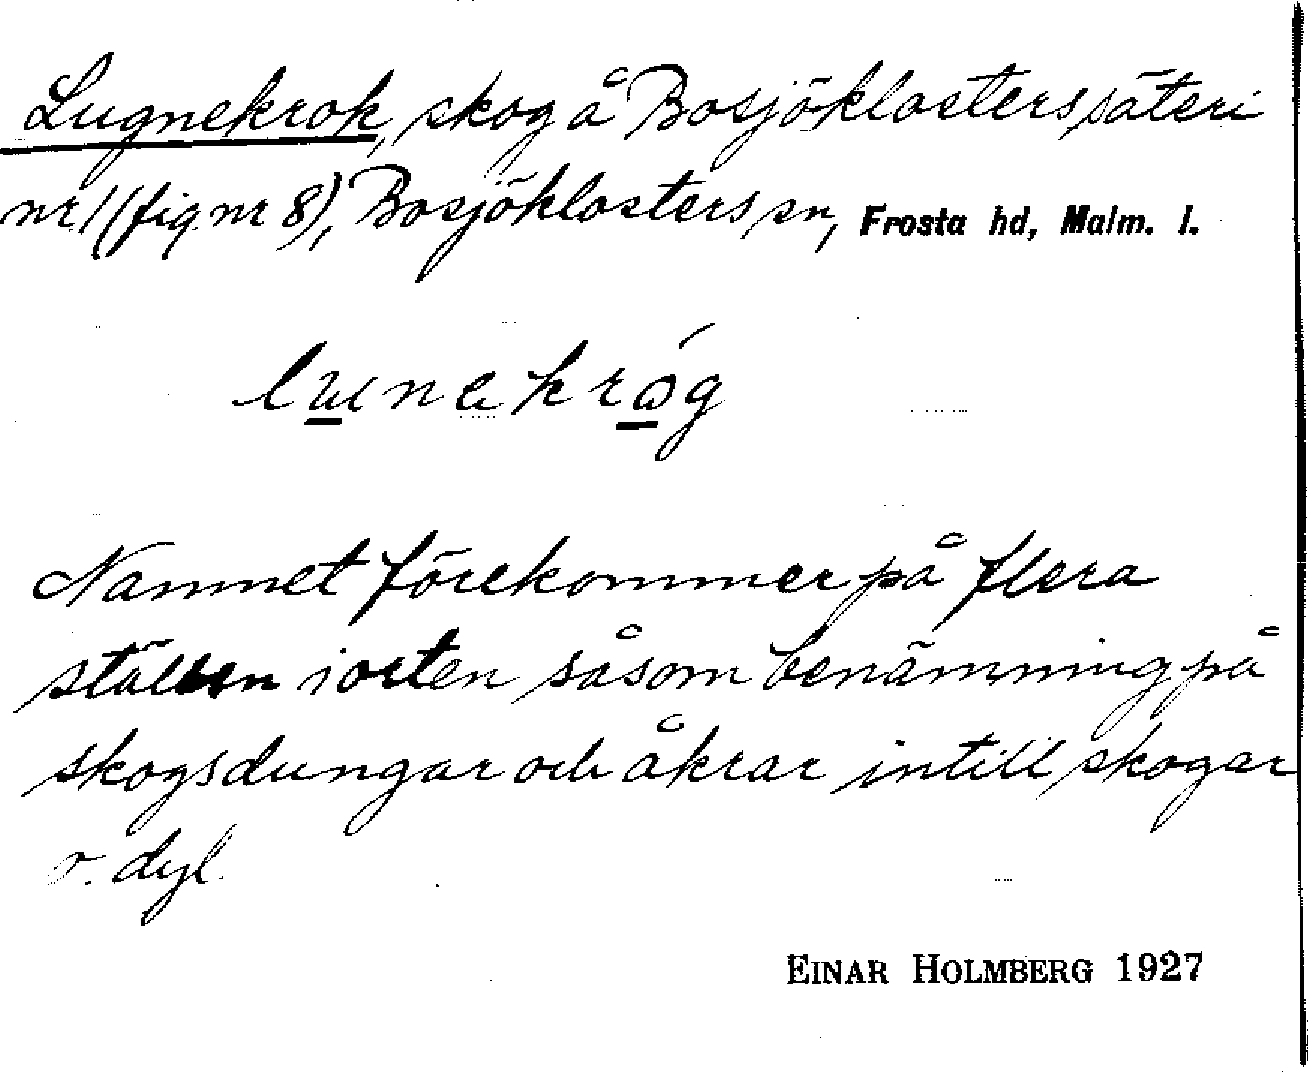 Lugnekrok, skog å Bosjöklosters säteri
nr 1 (fig nr 8), Bosjöklosters sn, Frosta hd, Malm. l.
Namnet förekommer på flera
ställen i orten såsom benämning på
skogsdungar och åkrar intill skogar
o. dyl.
EINAR HOLMBERG 1927